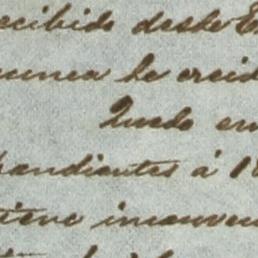 ecibido desde E
nunca he creid
Quedo en
pandientes á 18
tiene inconven